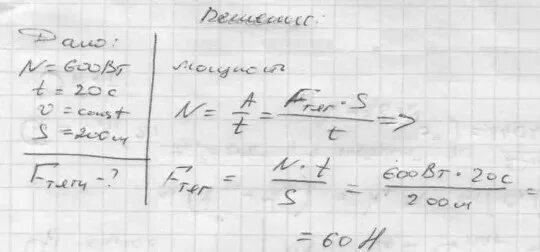 Решение:
Дано:
N = 600Вт
t = 20с
v = const
S = 200м
Fтяги - ?
мощность
N = A/t = Fтяг · S / t =>
Fтяг = N · t / S = 600Вт · 20с / 200м =
= 60 Н